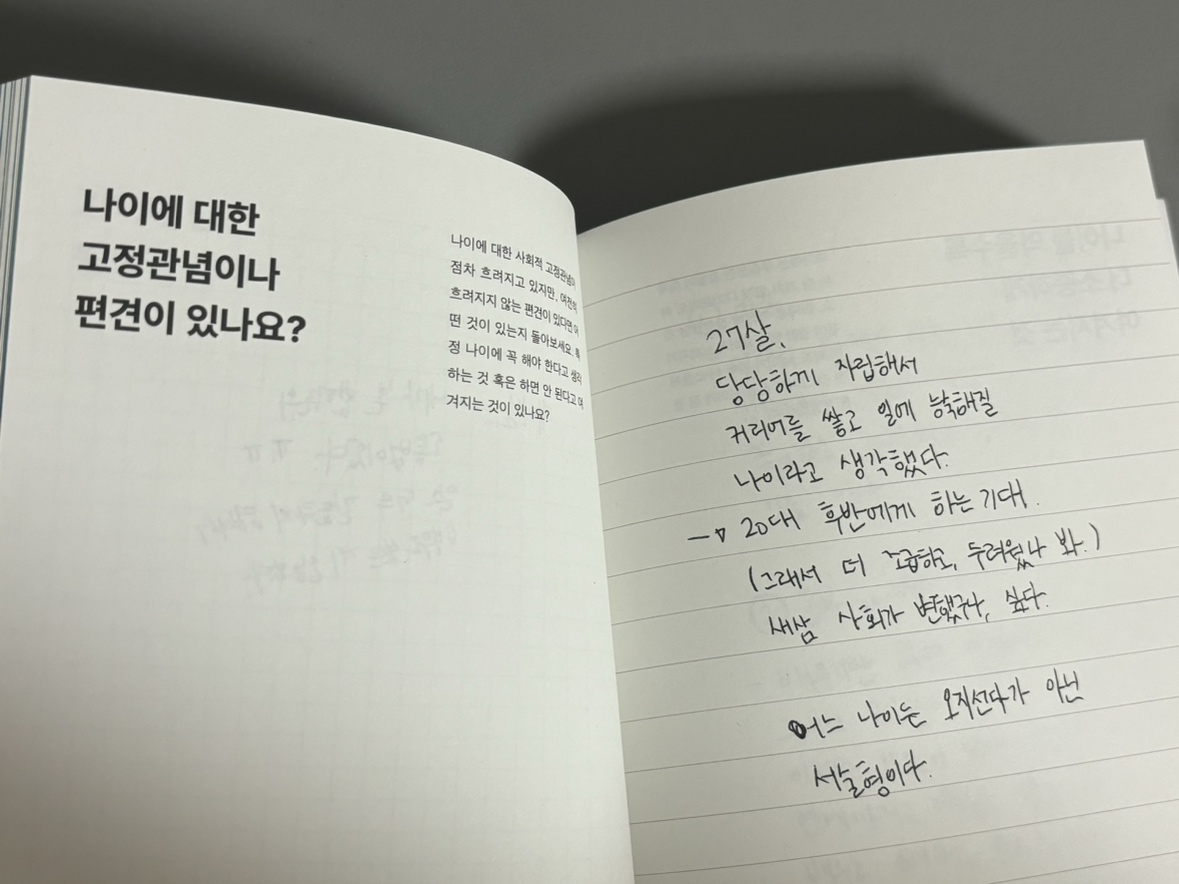 나이에 대한
고정관념이나
편견이 있나요?
나이에 대한 사회적 고정관념이
점차 흐려지고 있지만, 여전히
흐려지지 않는 편견이 있다면 어
떤 것이 있는지 돌아보세요. 특
정 나이에 꼭 해야 한다고 생각
하는 것 혹은 하면 안 된다고 여
겨지는 것이 있나요?
27살,
당당하게 자립해서
커리어를 쌓고 일에 능숙해질
나이라고 생각했다.
→ 20대 후반에게 하는 기대.
(그래서 더 조급하고, 두려웠나 봐.)
새삼 사회가 변했구나, 싶다.
어느 나이든 오지선다가 아닌
서술형이다.